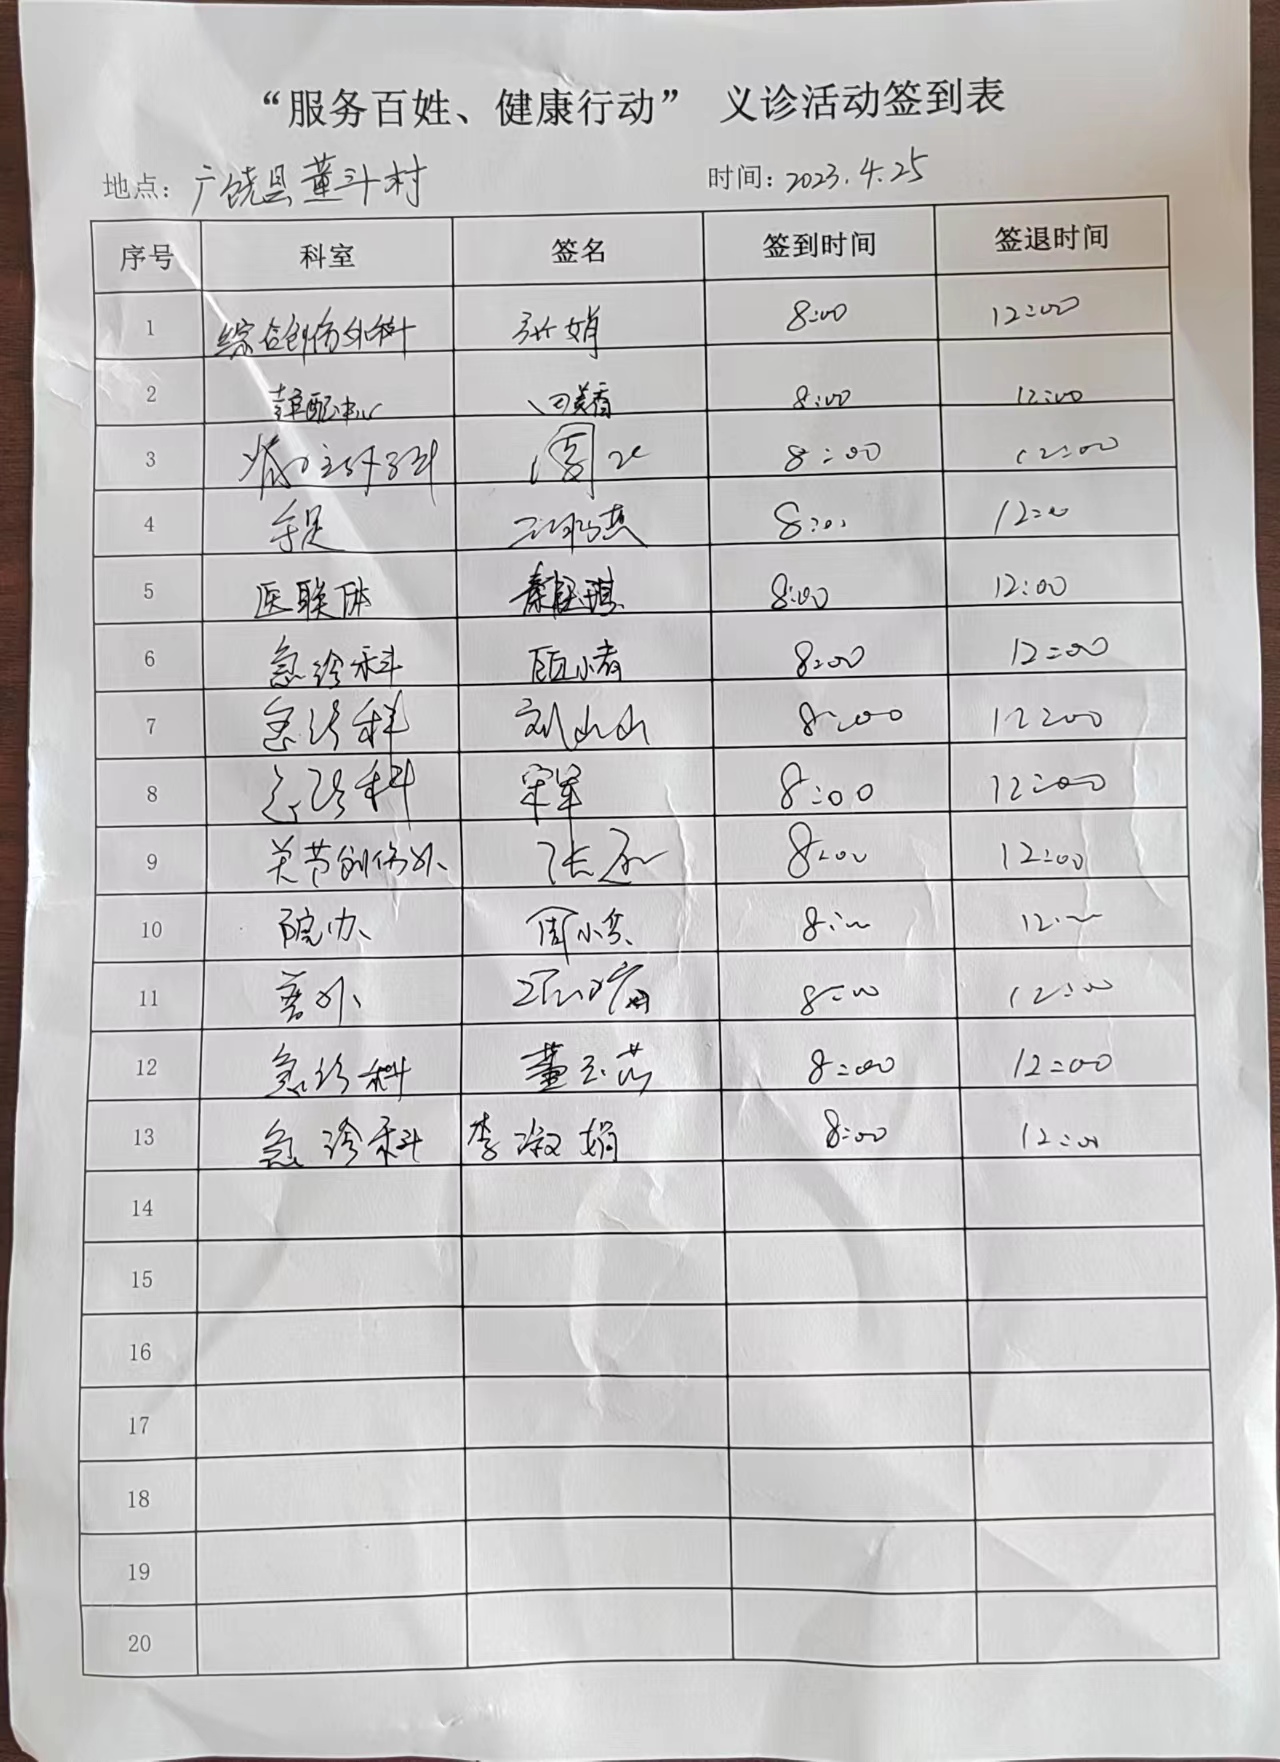 “服务百姓、健康行动” 义诊活动签到表
地点：广饶县董斗村 时间：2023.4.25
序号 科室 签名 签到时间 签退时间
1 综合创伤外科 张娟 8:00 12:00
2 静配中心 8:00 12:00
3 8:00 12:00
4 手足 8:00 12:00
5 医联体 秦 琪 8:00 12:00
6 急诊科 顾小 8:00 12:00
7 急诊科 刘山山 8:00 12:00
8 急诊科 宋军 8:00 12:00
9 关节创伤外 张 8:00 12:00
10 院办 周小兵 8:00 12:00
11 普外 8:00 12:00
12 急诊科 董玉 8:00 12:00
13 急诊科 李淑娟 8:00 12:00
14
15
16
17
18
19
20